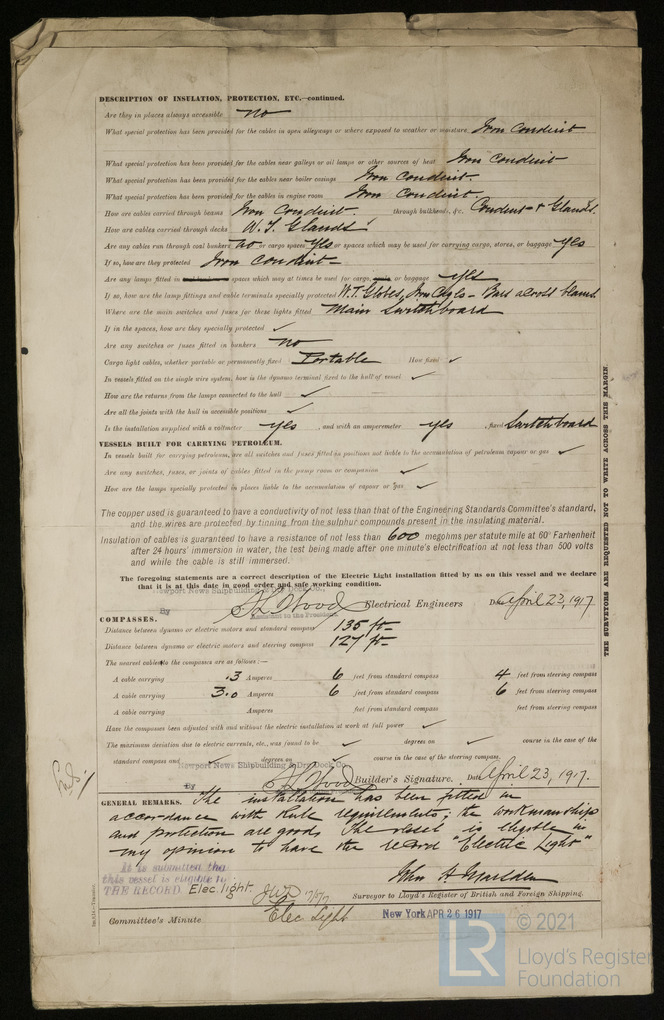 DESCRIPTION OF INSULATION, PROTECTION, ETC.—continued.
Are they in places always accessible no
What special protection has been provided for the cables in open alleyways or where exposed to weather or moisture Iron Conduit
What special protection has been provided for the cables near galleys or oil lamps or other sources of heat Iron Conduit
What special protection has been provided for the cables near boiler casings Iron Conduit
What special protection has been provided for the cables in engine room Iron Conduit.
How are cables carried through beams Iron Conduit. through bulkheads, &c. Conduit & Glands.
How are cables carried through decks W.T. Glands
Are any cables run through coal bunkers no or cargo spaces Yes or spaces which may be used for carrying cargo, stores, or baggage yes
If so, how are they protected Iron Conduit
Are any lamps fitted in spaces which may at times be used for cargo, or baggage yes
If so, how are the lamp fittings and cable terminals specially protected W.T. Globes, Iron Bars across
Where are the main switches and fuses for these lights fitted Main Switchboard
If in the spaces, how are they specially protected ✓
Are any switches or fuses fitted in bunkers no
Cargo light cables, whether portable or permanently fixed Portable How fixed ✓
In vessels fitted on the single wire system, how is the dynamo terminal fixed to the hull of vessel ✓
How are the returns from the lamps connected to the hull ✓
Are all the joints with the hull in accessible positions ✓
Is the installation supplied with a voltmeter yes , and with an amperemeter yes , fixed Switchboard
VESSELS BUILT FOR CARRYING PETROLEUM.
In vessels built for carrying petroleum, are all switches and fuses fitted in positions not liable to the accumulation of petroleum vapour or gas ✓
Are any switches, fuses, or joints of cables fitted in the pump room or companion ✓
How are the lamps specially protected in places liable to the accumulation of vapour or gas ✓
The copper used is guaranteed to have a conductivity of not less than that of the Engineering Standards Committee's standard,
and the wires are protected by tinning from the sulphur compounds present in the insulating material.
Insulation of cables is guaranteed to have a resistance of not less than 600 megohms per statute mile at 60° Farhenheit
after 24 hours' immersion in water, the test being made after one minute's electrification at not less than 500 volts
and while the cable is still immersed.
The foregoing statements are a correct description of the Electric Light installation fitted by us on this vessel and we declare
that it is at this date in good order and safe working condition.
Newport News Shipbuilding & Dry Dock Co.,
By Wood Electrical Engineers Date April 23, 1917
Assistant to the President
COMPASSES.
Distance between dynamo or electric motors and standard compass 135 ft
Distance between dynamo or electric motors and steering compass 127 ft
The nearest cables to the compasses are as follows:—
A cable carrying .3 Amperes 6 feet from standard compass 4 feet from steering compass
A cable carrying 3.0 Amperes 6 feet from standard compass 6 feet from steering compass
A cable carrying Amperes feet from standard compass feet from steering compass
Have the compasses been adjusted with and without the electric installation at work at full power ✓
The maximum deviation due to electric currents, etc., was found to be ✓ degrees on ✓ course in the case of the
standard compass and ✓ degrees on ✓ course in the case of the steering compass.
Newport News Shipbuilding & Dry Dock Co.
By Wood Builder's Signature. Date April 23, 1917.
GENERAL REMARKS. The installation has been fitted in
accordance with Rule requirements; the workmanship
and protection are good. The vessel is eligible in
my opinion to have the record "Electric Light"
It is submitted that
this vessel is eligible to
THE RECORD. Elec. light
John H
Surveyor to Lloyd's Register of British and Foreign Shipping.
Committee's Minute Elec Light New York APR 26 1917
THE SURVEYORS ARE REQUESTED NOT TO WRITE ACROSS THIS MARGIN.
LR
© 2021
Lloyd's Register
Foundation